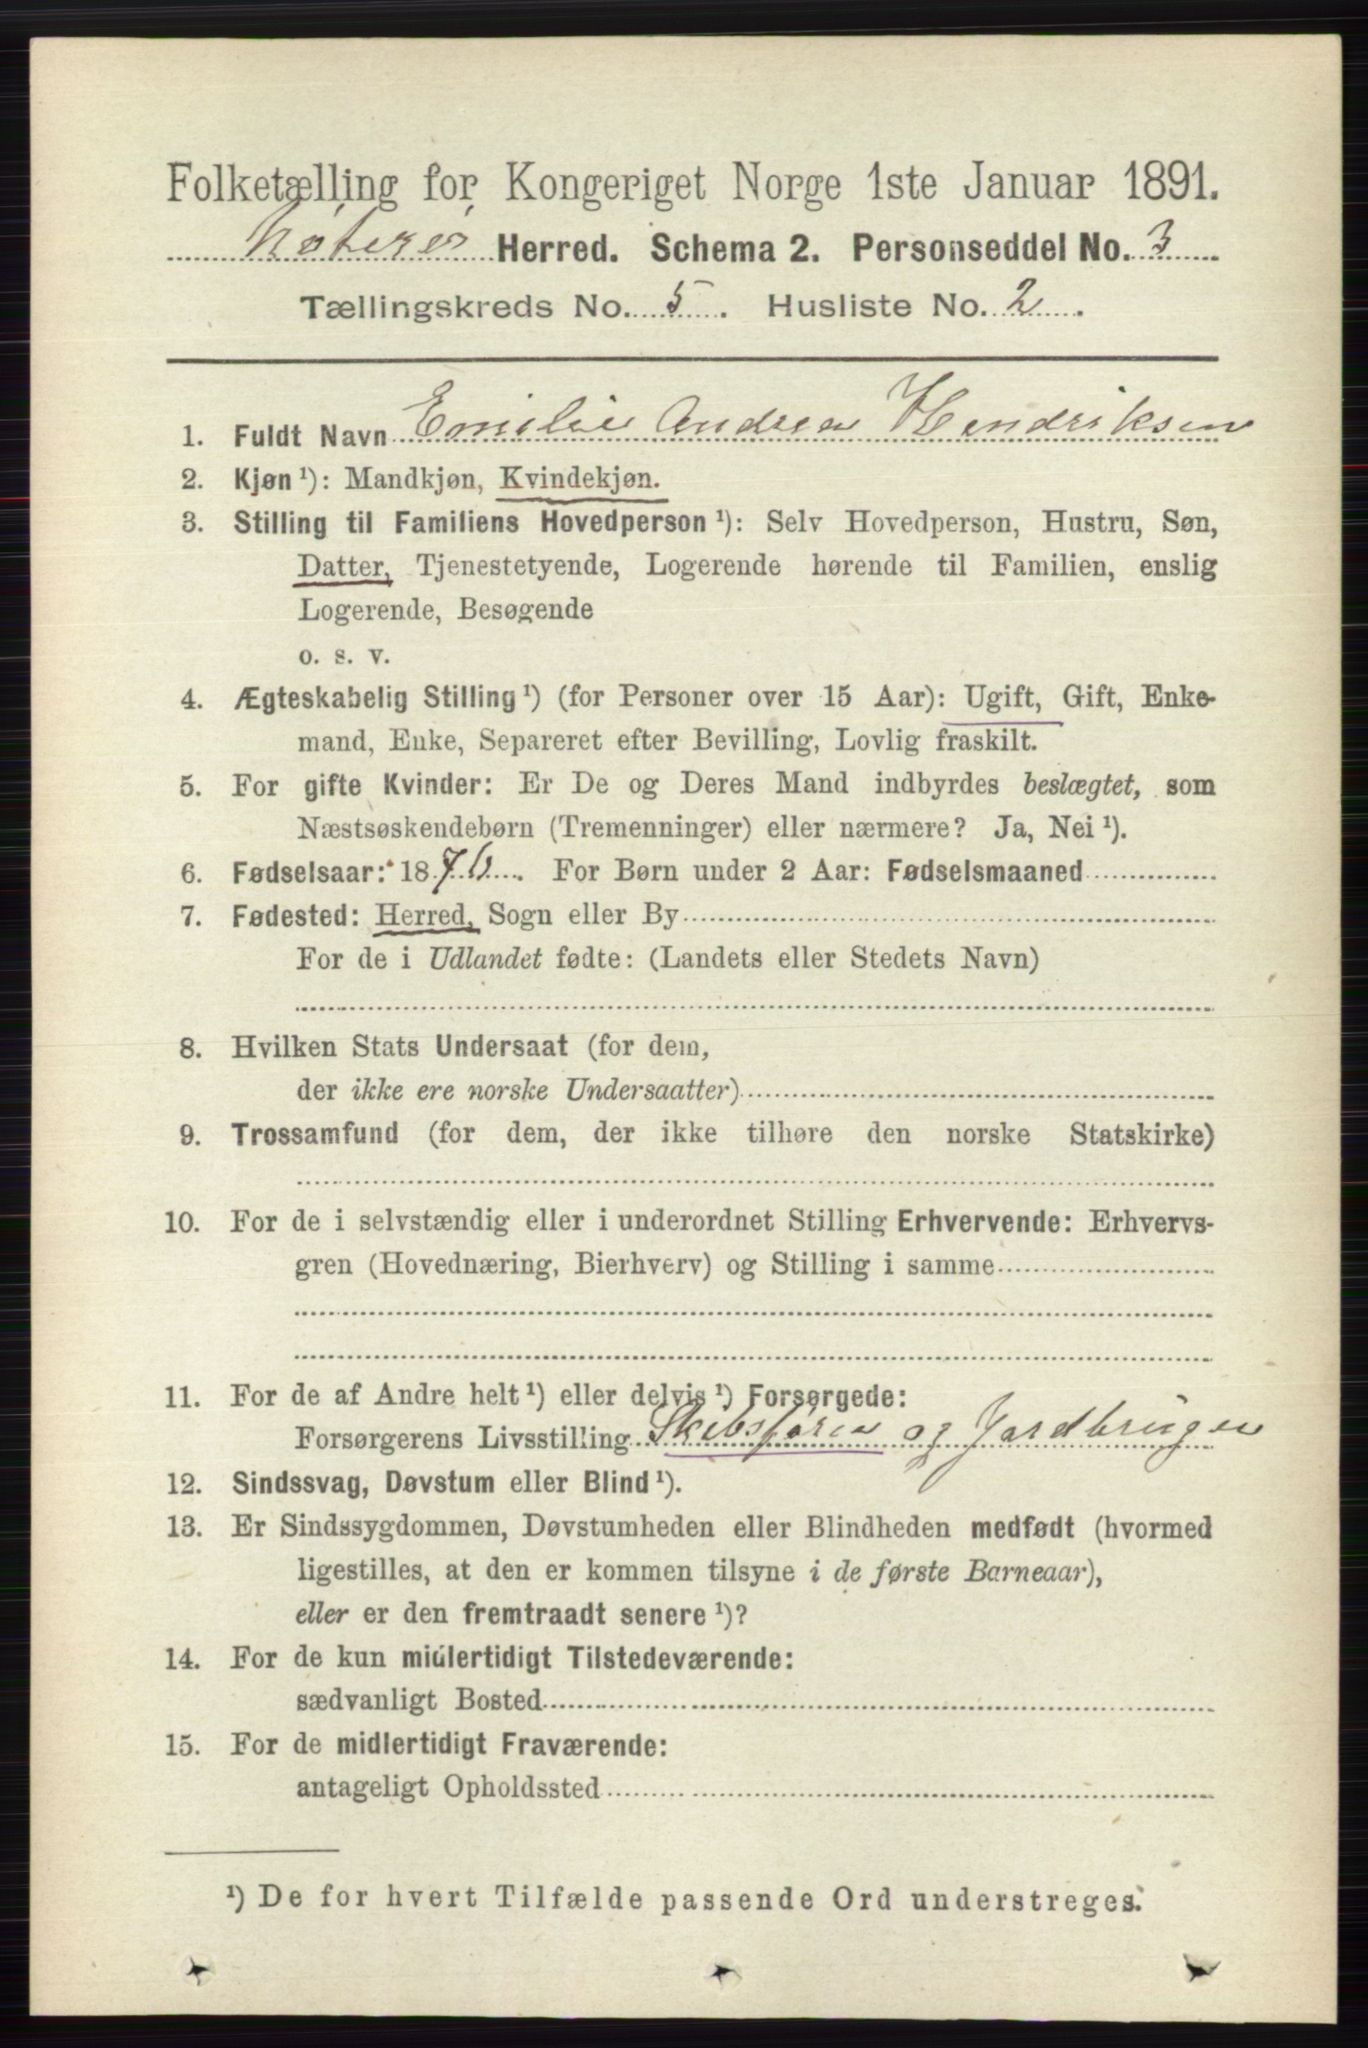 Folketælling for Kongeriget Norge 1ste Januar 1891.
Nøterø Herred. Schema 2. Personseddel No. 3
Tællingskreds No. 5. Husliste No. 2.
1. Fuldt Navn Emilie Andrea Hendriksen
2. Kjøn ¹): Mandkjøn, Kvindekjøn.
3. Stilling til Familiens Hovedperson ¹): Selv Hovedperson, Hustru, Søn,
Datter, Tjenestetyende, Logerende hørende til Familien, enslig
Logerende, Besøgende
o. s. v.
4. Ægteskabelig Stilling ¹) (for Personer over 15 Aar): Ugift, Gift, Enke-
mand, Enke, Separeret efter Bevilling, Lovlig fraskilt.
5. For gifte Kvinder: Er De og Deres Mand indbyrdes beslægtet, som
Næstsøskendebørn (Tremenninger) eller nærmere? Ja, Nei ¹).
6. Fødselsaar: 1876. For Børn under 2 Aar: Fødselsmaaned
7. Fødested: Herred, Sogn eller By
For de i Udlandet fødte: (Landets eller Stedets Navn)
8. Hvilken Stats Undersaat (for dem,
der ikke ere norske Undersaatter)
9. Trossamfund (for dem, der ikke tilhøre den norske Statskirke)
10. For de i selvstændig eller i underordnet Stilling Erhvervende: Erhvervs-
gren (Hovednæring, Bierhverv) og Stilling i samme
11. For de af Andre helt ¹) eller delvis ¹) Forsørgede:
Forsørgerens Livsstilling Skibsfører og Jordbruger
12. Sindssvag, Døvstum eller Blind ¹).
13. Er Sindssygdommen, Døvstumheden eller Blindheden medfødt (hvormed
ligestilles, at den er kommen tilsyne i de første Barneaar),
eller er den fremtraadt senere ¹)?
14. For de kun midlertidigt Tilstedeværende:
sædvanligt Bosted
15. For de midlertidigt Fraværende:
antageligt Opholdssted
¹) De for hvert Tilfælde passende Ord understreges.